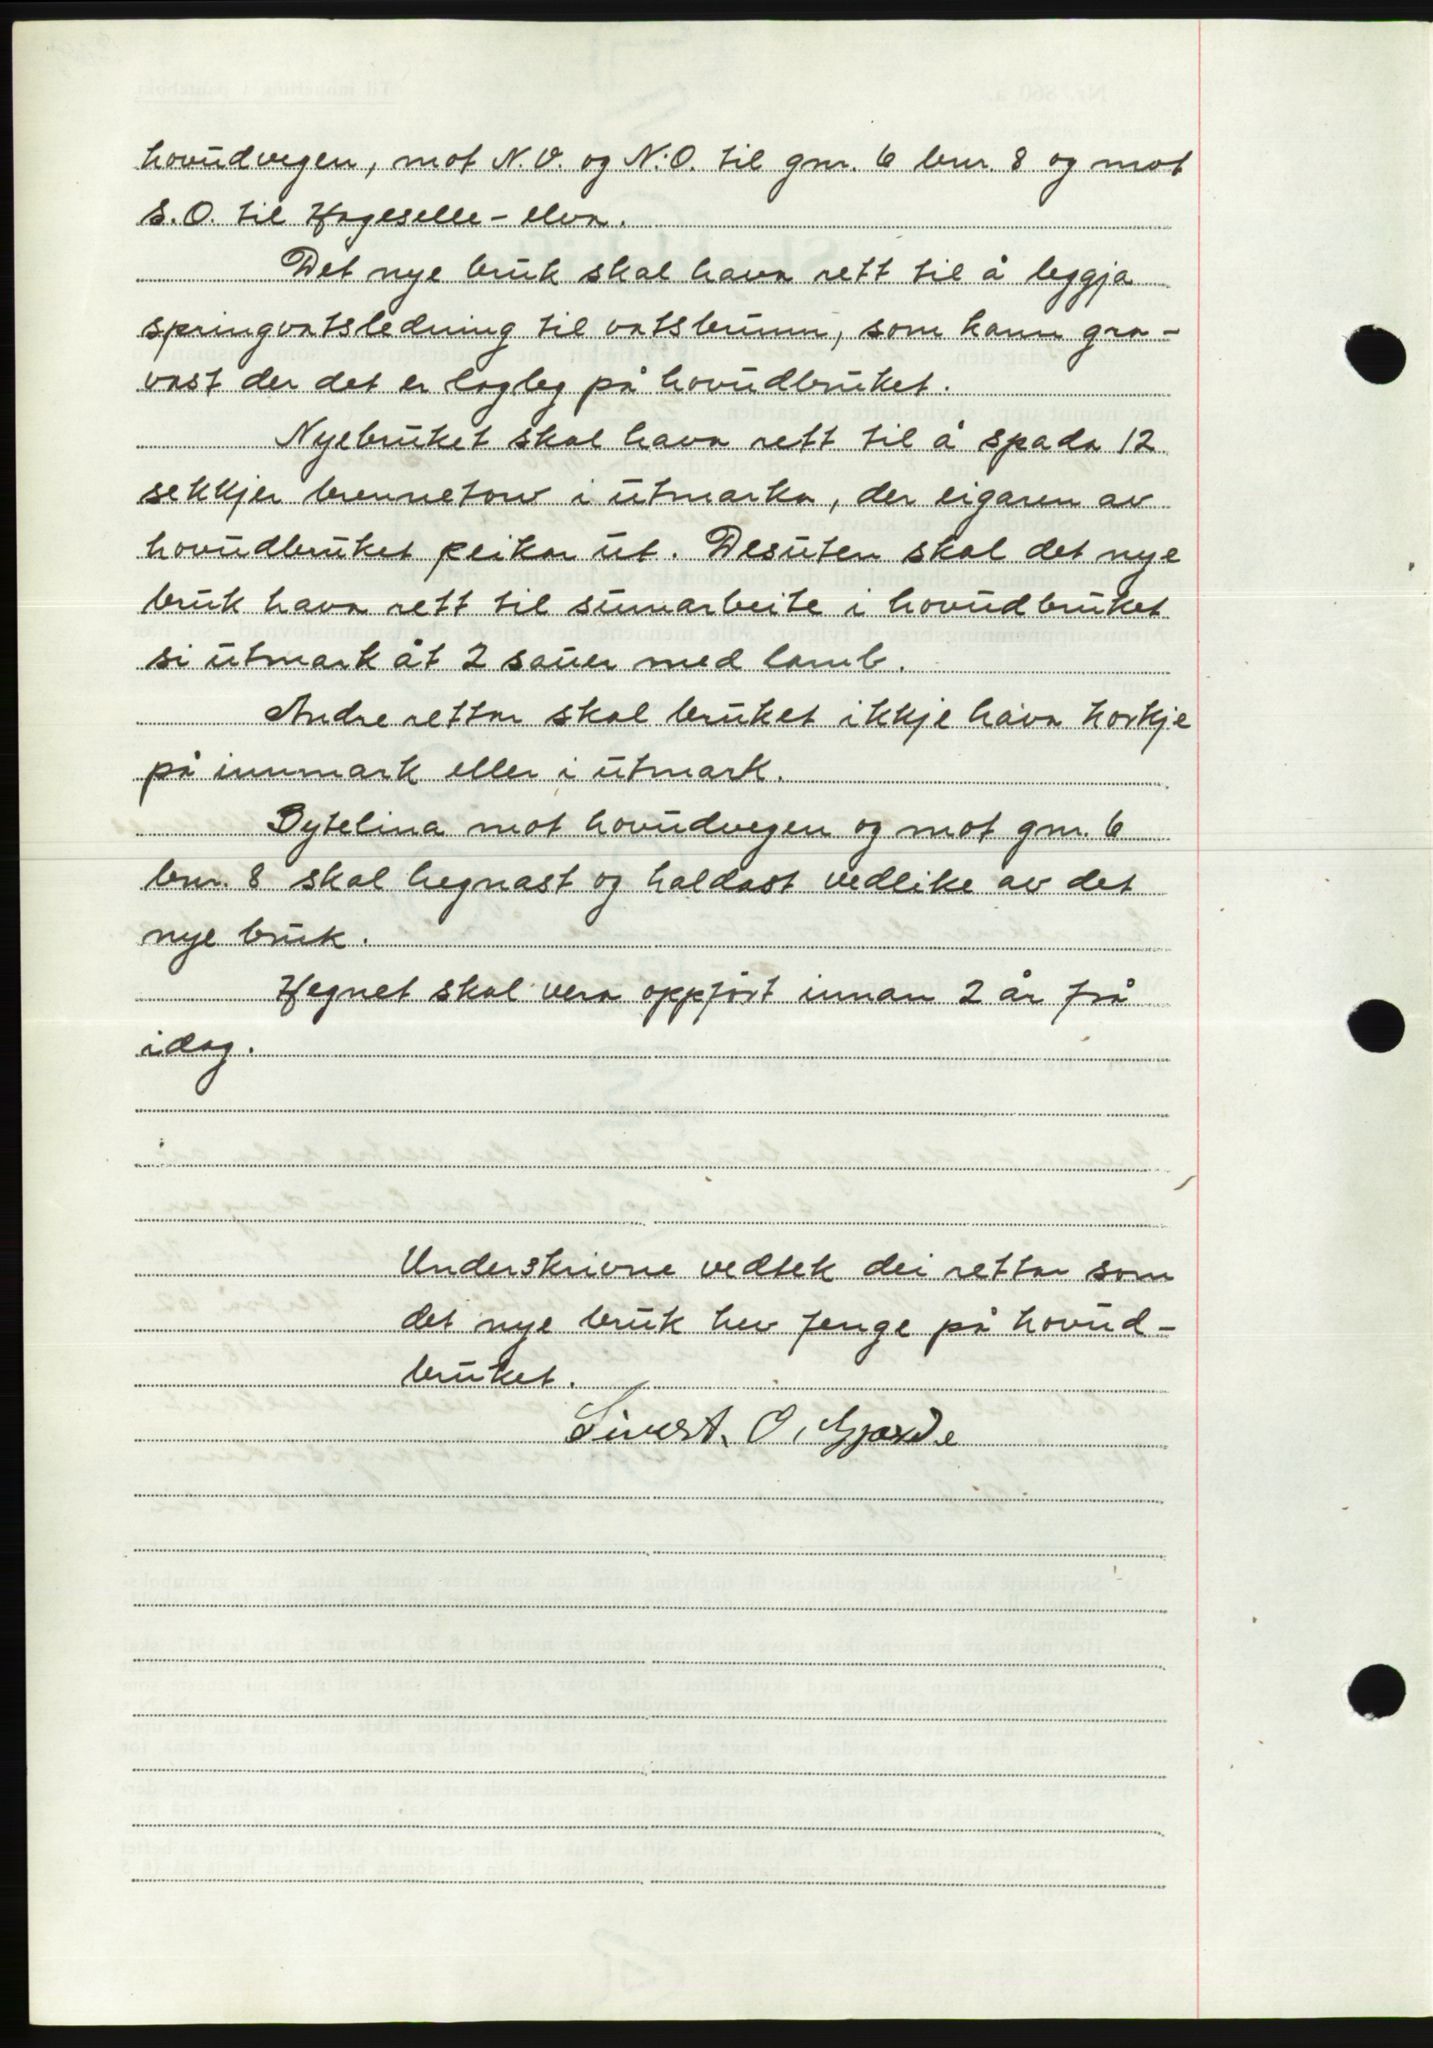 hovudvegen, mot N.V. og N.O. til gnr. 6 bnr. 8 og mot
S.O. til Hageselle-elva.
Det nye bruk skal hava rett til å leggja
springvatsledning til vatsbrunn, som kann gra-
vast der det er lagleg på hovudbruket.
Nyebruket skal hava rett til å spada 12
sekkjer brennetorv i utmarka, der eigaren av
hovudbruket peikar ut. Desuten skal det nye
bruk hava rett til sumarbeite i hovudbruket
si utmark åt 2 sauer med lamb.
Andre rettar skal bruket ikkje hava korkje
på innmark eller i utmark.
Bytelina mot hovudvegen og mot gnr. 6
bnr. 8 skal hegnast og haldast vedlike av det
nye bruk.
Hegnet skal vera oppført innan 2 år frå
idag.
Underskrivne vedtek dei rettar som
det nye bruk hev fenge på hovud-
bruket.
Sivert O. Gjerde